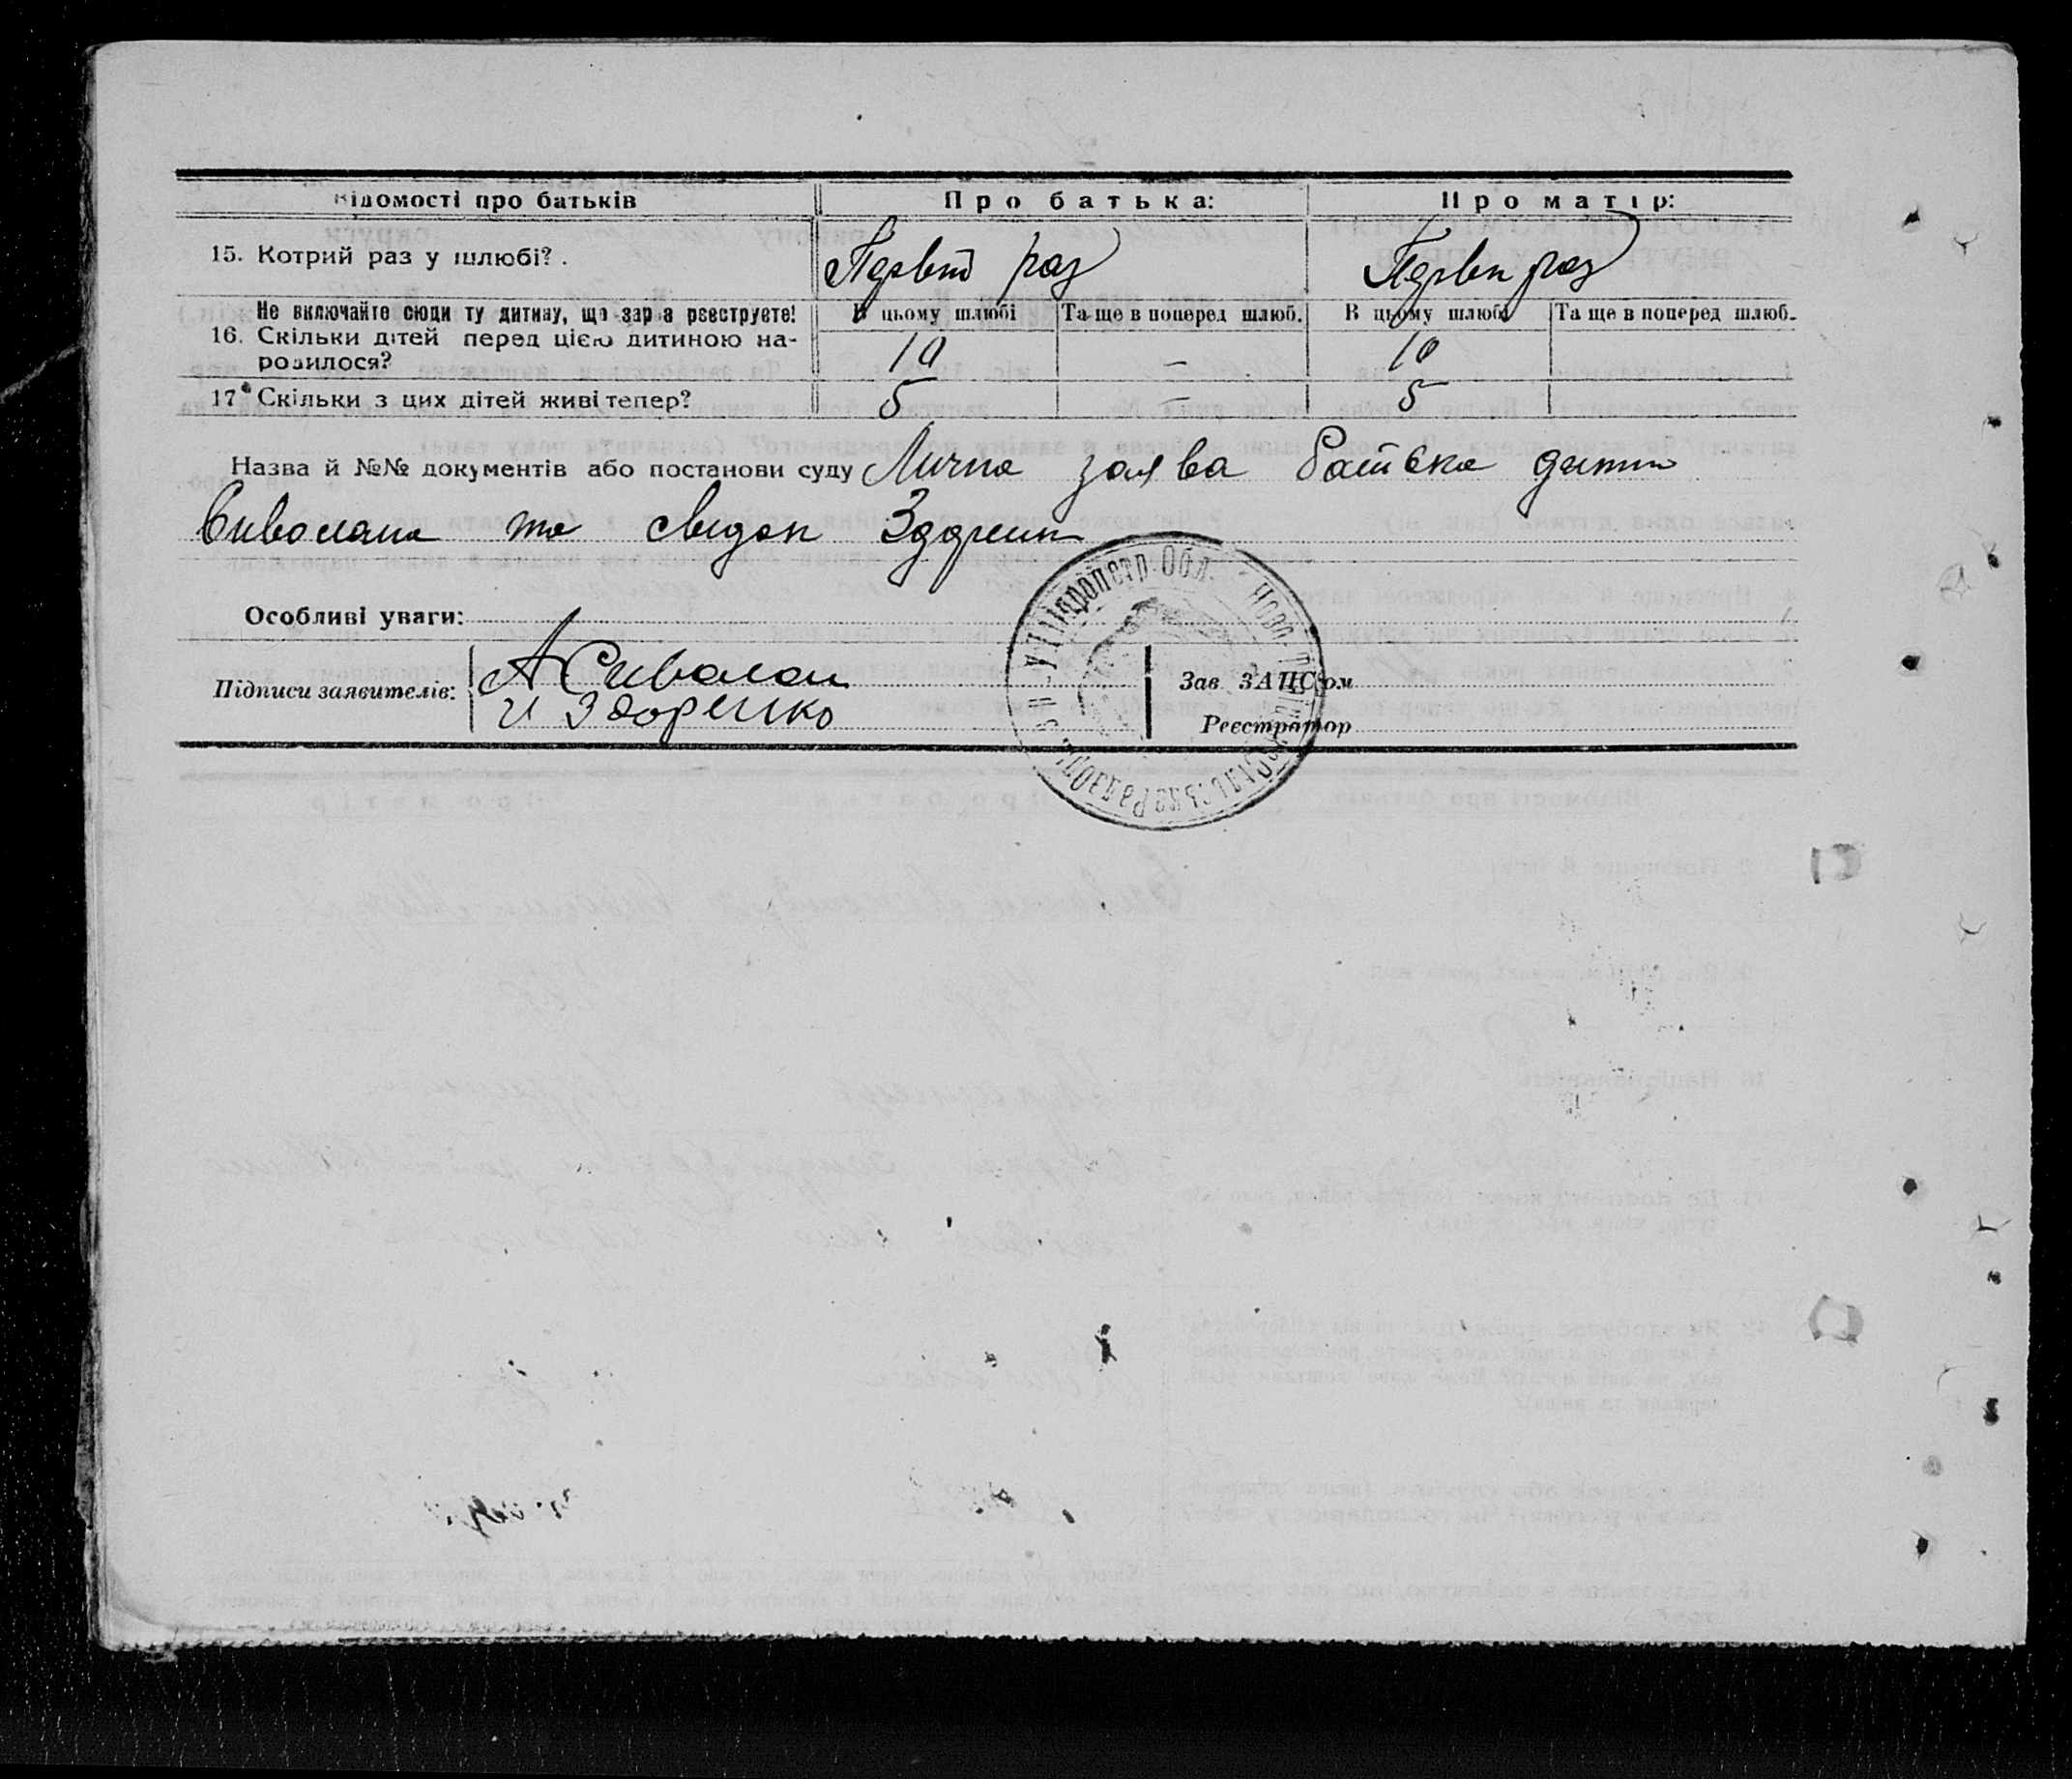 Відомості про батьків Про батька: Про матір:
15. Котрий раз у шлюбі? . Первий раз Перви раз
Не включайте сюди ту дитину, що зараз реєструєте! В цьому шлюбі Та ще в поперед шлюб. В цьому шлюбі Та ще в поперед шлюб.
16. Скільки дітей перед цією дитиною на-
родилося? 10 — 10
17 Скільки з цих дітей живі тепер? 5 — 5
Назва й №№ документів або постанови суду Лична заява батька
та свидок
Особливі уваги:
Підписи заявителів: А Сиволап
И Здоренко
Зав. ЗАЦСом
Реєстратор